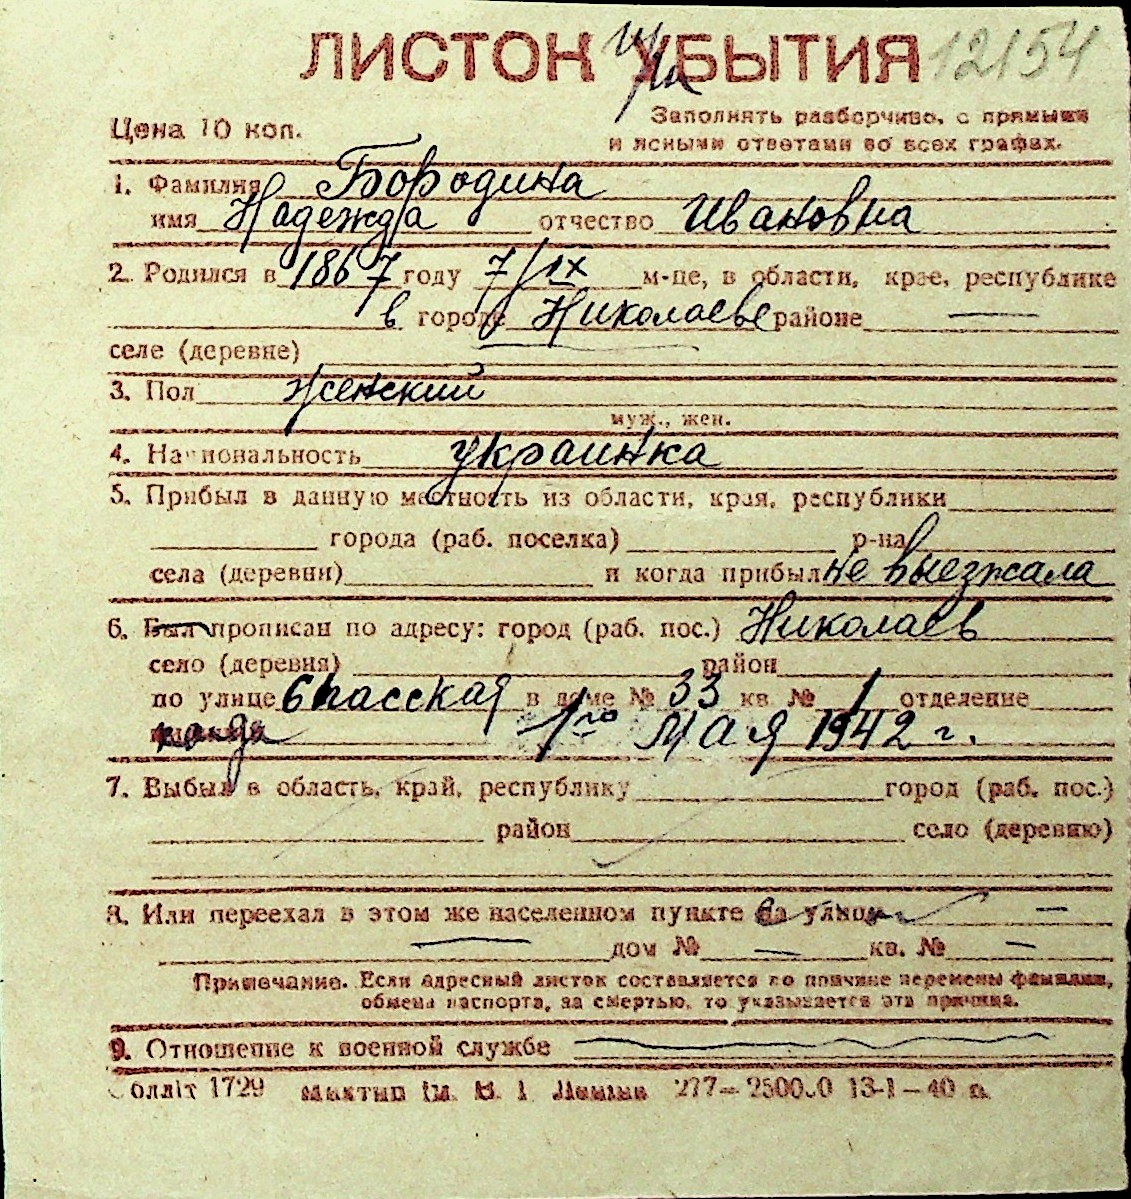 ЛИСТОК УБЫТИЯ 12154
Цена 10 коп.
Заполнять разборчиво, с прямыми
и ясными ответами во всех графах.
1. Фамилия Бородина
имя Надежда отчество Ивановна
2. Родился в 1867 году 7/IX м-це, в области, крае, республике
в городе Николаеве районе —
селе (деревне)
3. Пол женский
муж., жен.
4. Национальность украинка
5. Прибыл в данную местность из области, края, республики
города (раб. поселка) р-на
села (деревни) и когда прибыл не выезжала
6. Был прописан по адресу: город (раб. пос.) Николаев
село (деревня) район
по улице Спасская в доме № 33 кв № 1 отделение
когда 1го мая 1942 г.
7. Выбыл в область, край, республику город (раб. пос.)
район село (деревню)
8. Или переехал в этом же населенном пункте на улицу —
— дом № — кв. № —
Примечание. Если адресный листок составляется по причине перемены фамилии,
обмена паспорта, за смертью, то указывается эта причина.
9. Отношение к военной службе
Облліт 1729 ім. В. І. Леніна 277— 13-1—40 р.